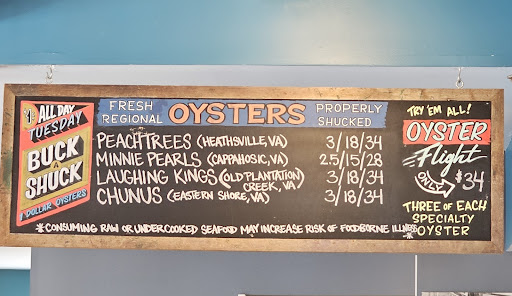 ALL DAY
TUESDAY
BUCK
A
SHUCK
1 DOLLAR OYSTERS
FRESH
REGIONAL
OYSTERS
PROPERLY
SHUCKED
PEACHTREES (HEATHSVILLE, VA) 3/18/34
MINNIE PEARLS (CAPPAHOSIC, VA) 25/15/28
LAUGHING KINGS (OLD PLANTATION CREEK, VA) 3/18/34
CHUNUS (EASTERN SHORE, VA) 3/18/34
*CONSUMING RAW OR UNDERCOOKED SEAFOOD MAY INCREASE RISK OF FOODBORNE ILLNESS*
TRY 'EM ALL!
OYSTER
Flight
ONLY $34
THREE OF EACH
SPECIALTY
OYSTER